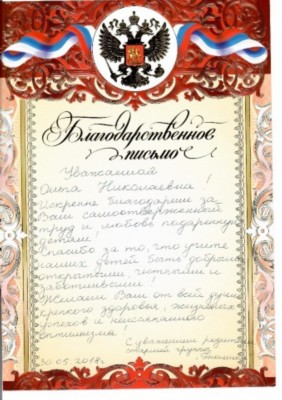 Благодарственное
письмо
Уважаемая
Ольга Николаевна!
Искренне благодарим за
Ваш самоотверженный
труд и любовь подаренную
детям.
Спасибо за то, что учите
наших детей быть добрыми,
открытыми, чуткими и
заботливыми!
Желаем Вам от всей души
крепкого здоровья, жизненных
успехов и нескончаемого
оптимизма!
С уважением родители
старшей группы
30.05.2018г.